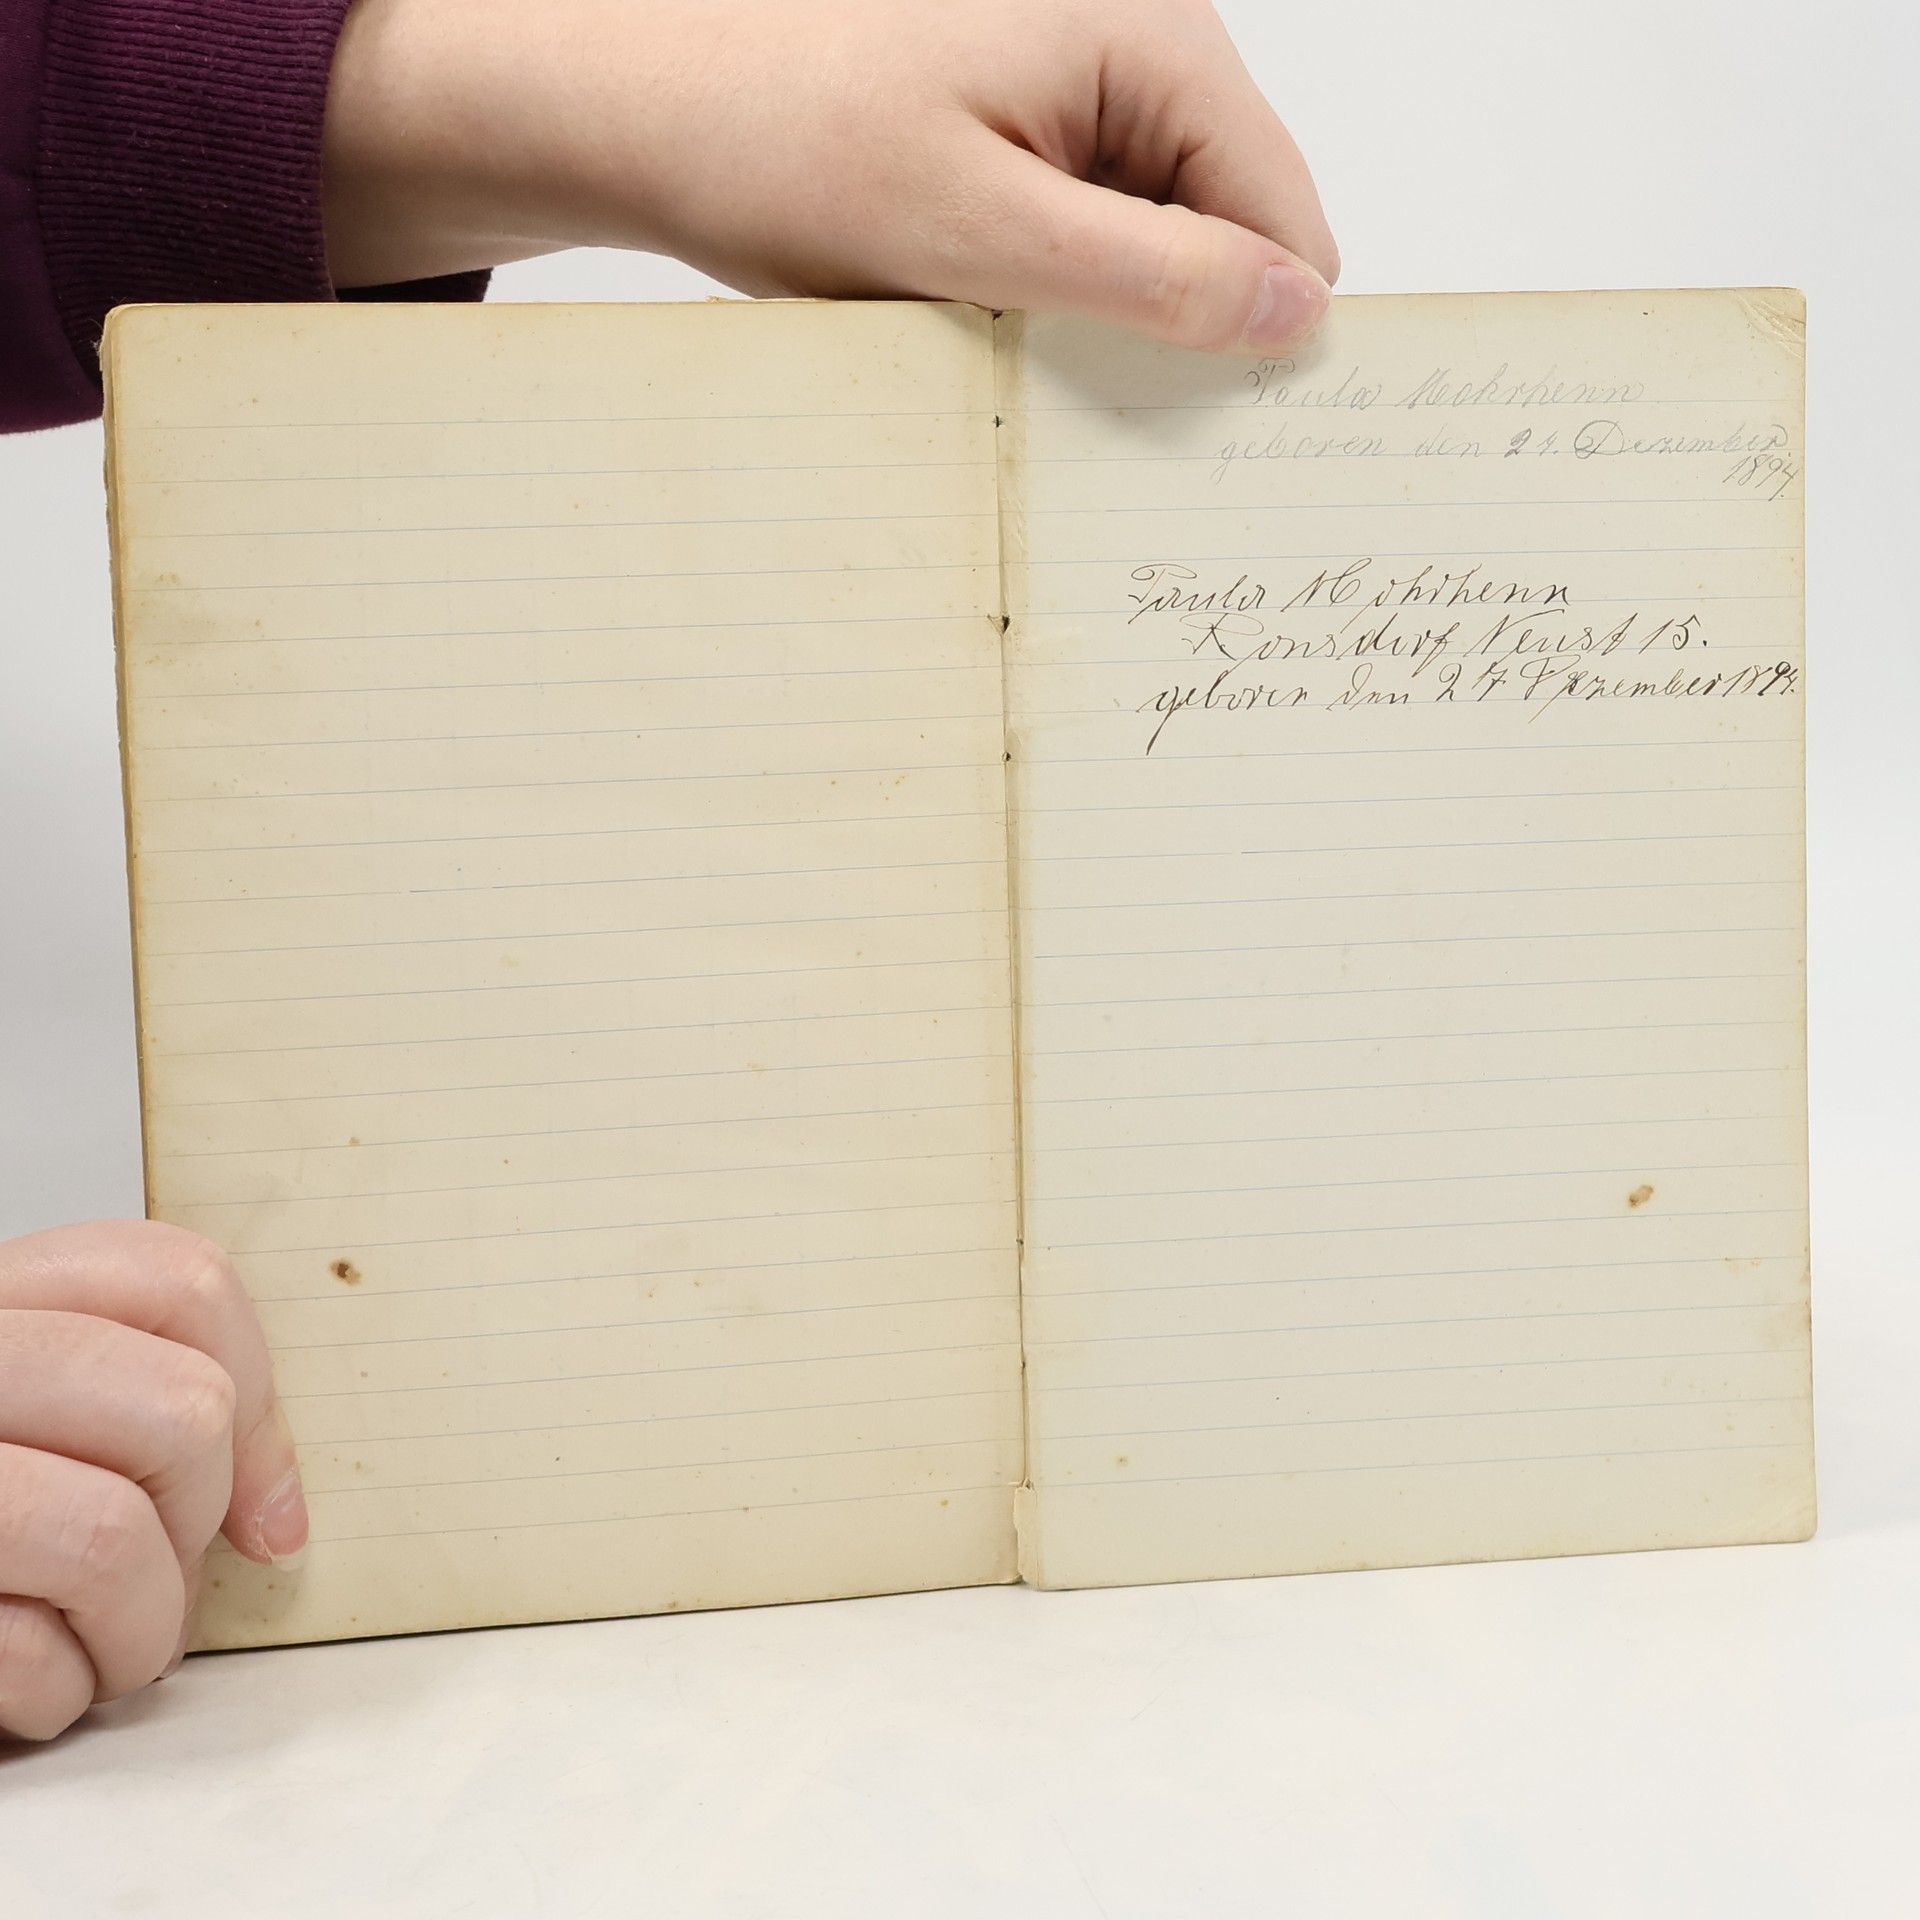 Paula Mohrhenn
geboren den 27. Dezember
1894.
Paula Mohrhenn
Ronsdorf Neust 15.
geboren den 27 Dezember 1894.